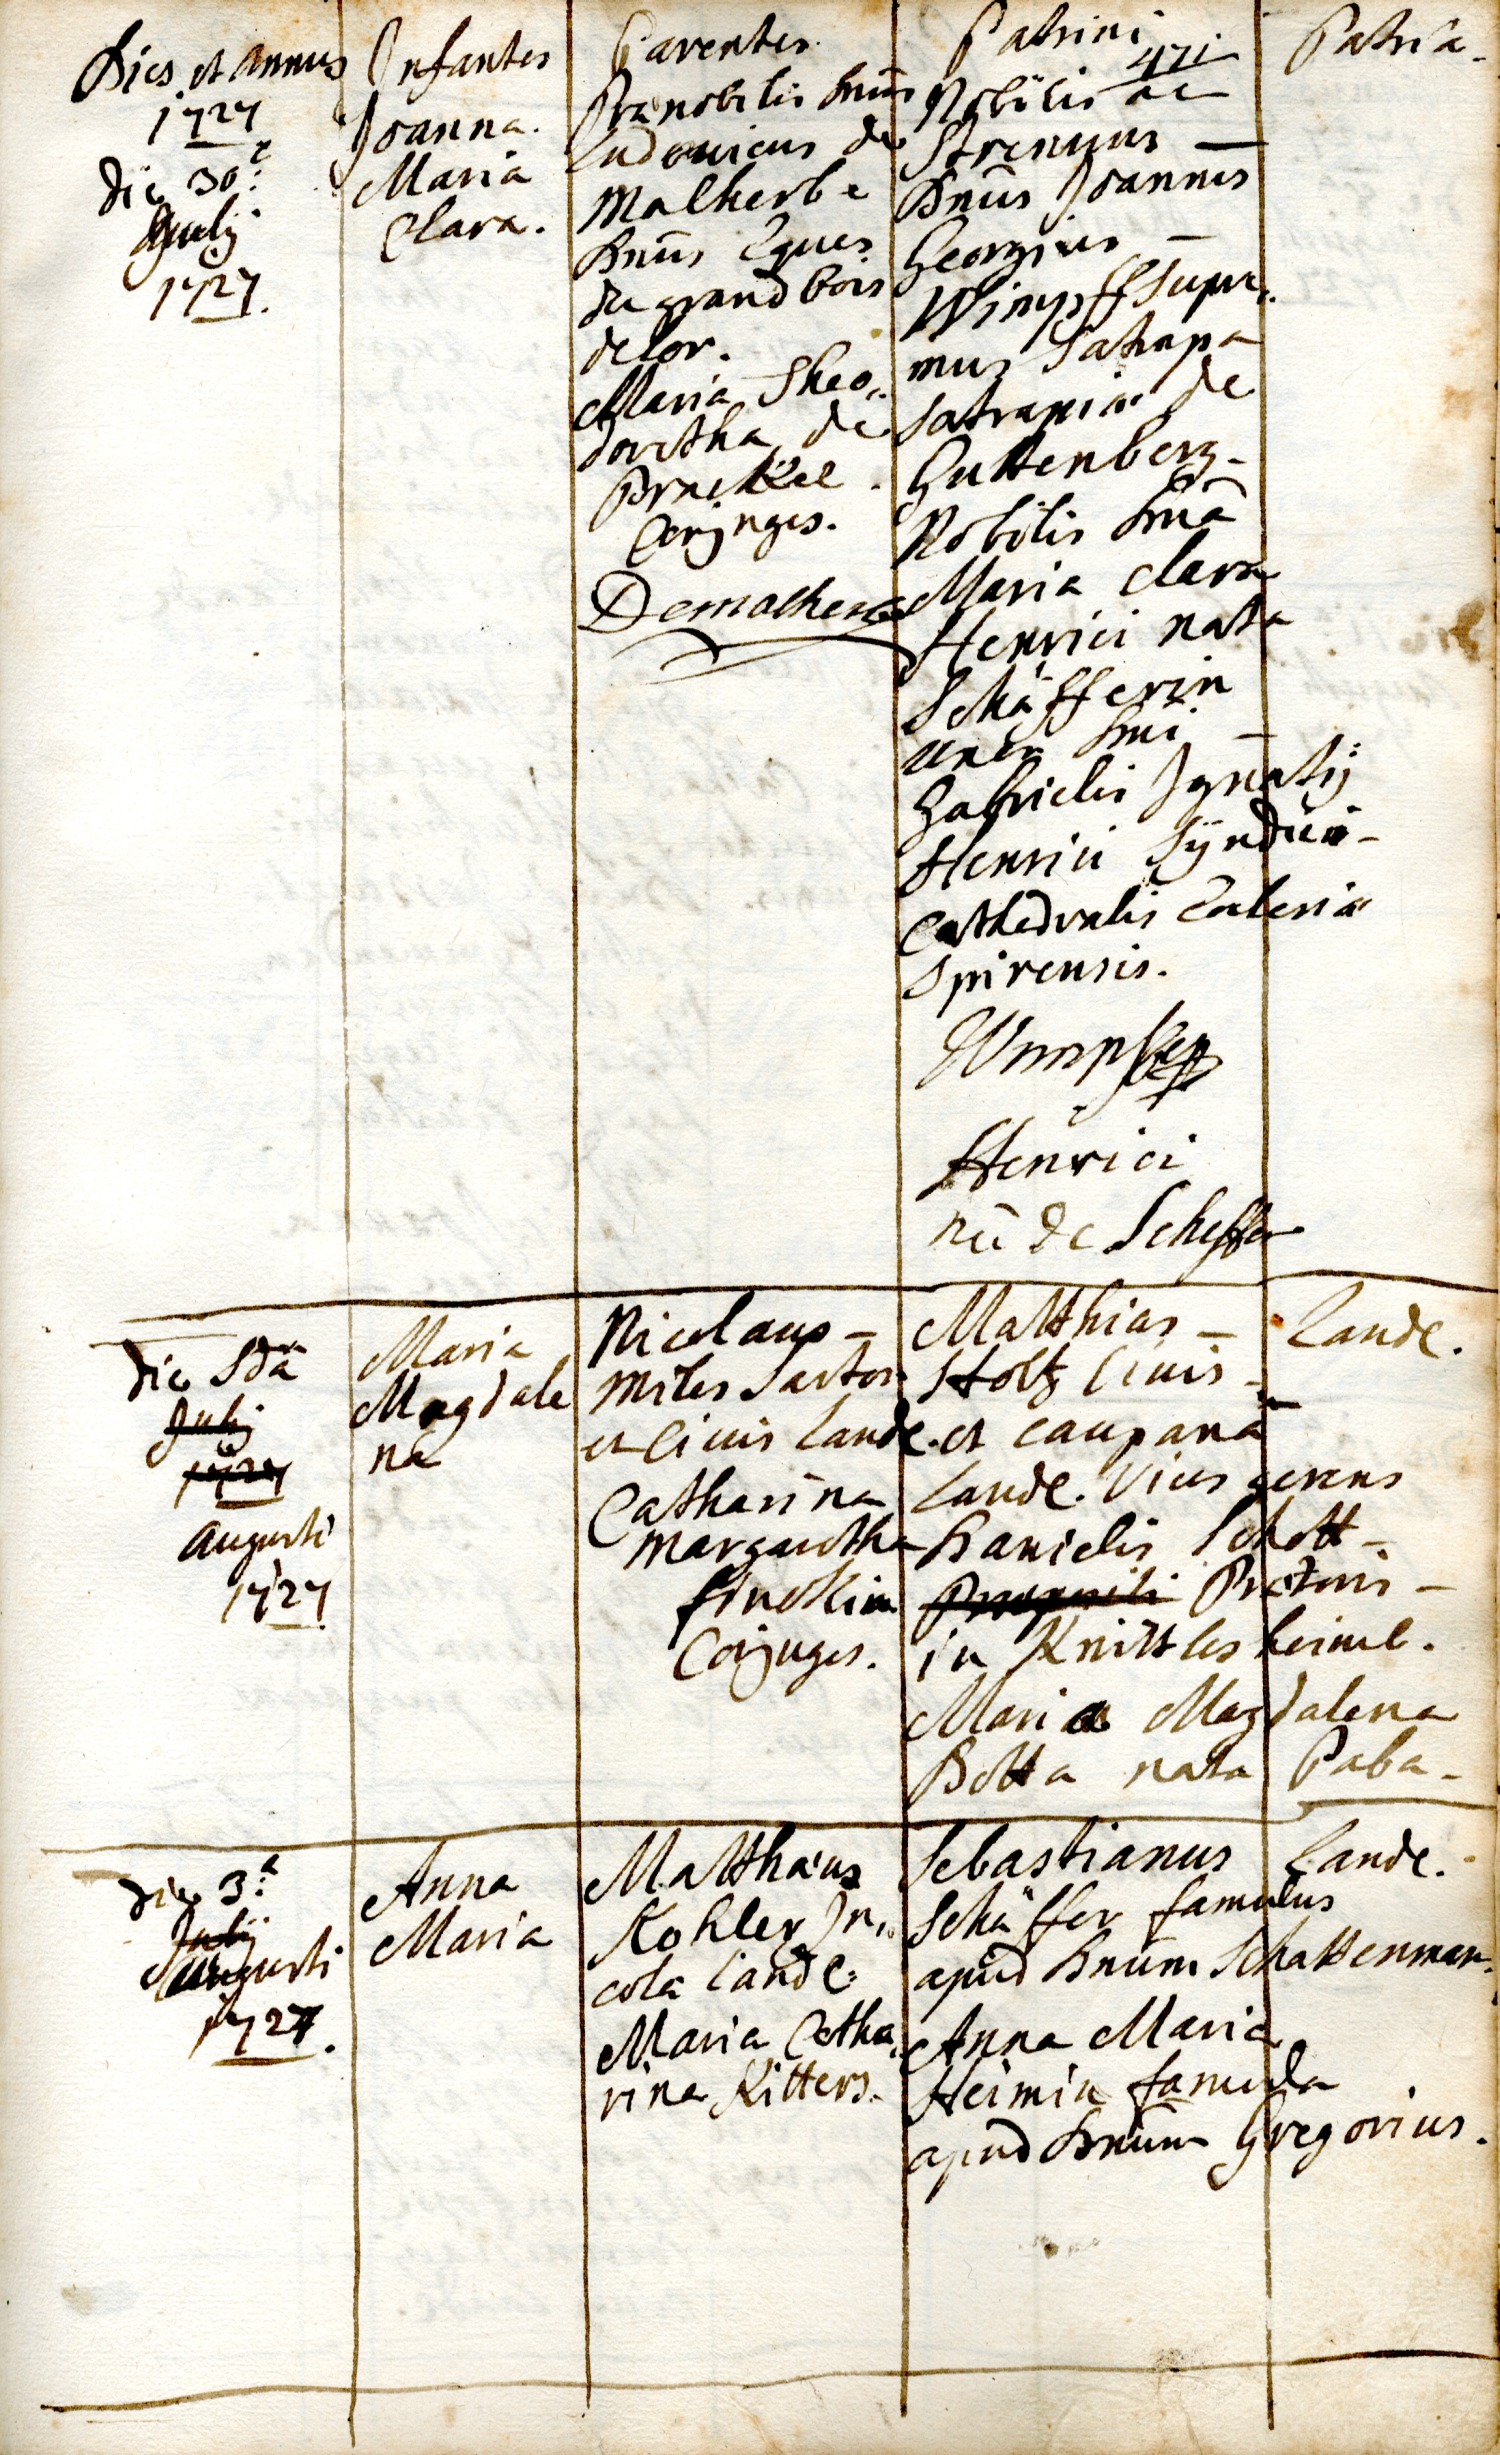 Dies et Annus
1727
die 30:a
July
1727.
Infantes
Joanna.
Maria
Clara.
Parentes
Prænobilis Dnus
Ludovicus de
Malherbe
Dnus Eques
de grand bois
delor.
Maria Theo„
doretha de
Conjuges.
Demalherbe
Patrini
471
Nobilis ac
Strenuus —
Dnus Joannes
Georgius —
Wimpff supre„
mus Satrapa
satrapiæ de
Guttenberg -
Nobilis Dna
Maria Clara
Henrici nata
Schäfferin
uxor Dni —
Gabrielis Ignatij
Henrici Syndici -
Cathedralis Ecclesiæ
Spirensis.
Wimpffen
Henrici
né de Scheffer
Patria -
die 2da
July
1727
Augusti
1727
Maria
Magdale
na
Nicolaus -
Miles Sartor
et Civis Land.
Catharina
Margaretha
Conjuges.
Matthias -
Stoltz Civis -
et Caupana
Lande. Vices gerens
Danielis Schott -
Prætoris -
in Knittlesheime.
Maria Magdalena
Botta nata Paba -
Lande.
die 3:a
July
Augusti
1727.
Anna
Maria
Matthæus
Kohler In„
cola Lande:
Maria Catha„
rina Ritters.
Sebastianus
Schäffer famulus
apud Dnum Schattenman.
Anna Maria
Heimin famula
apud Dnum Gregorius.
Lande.